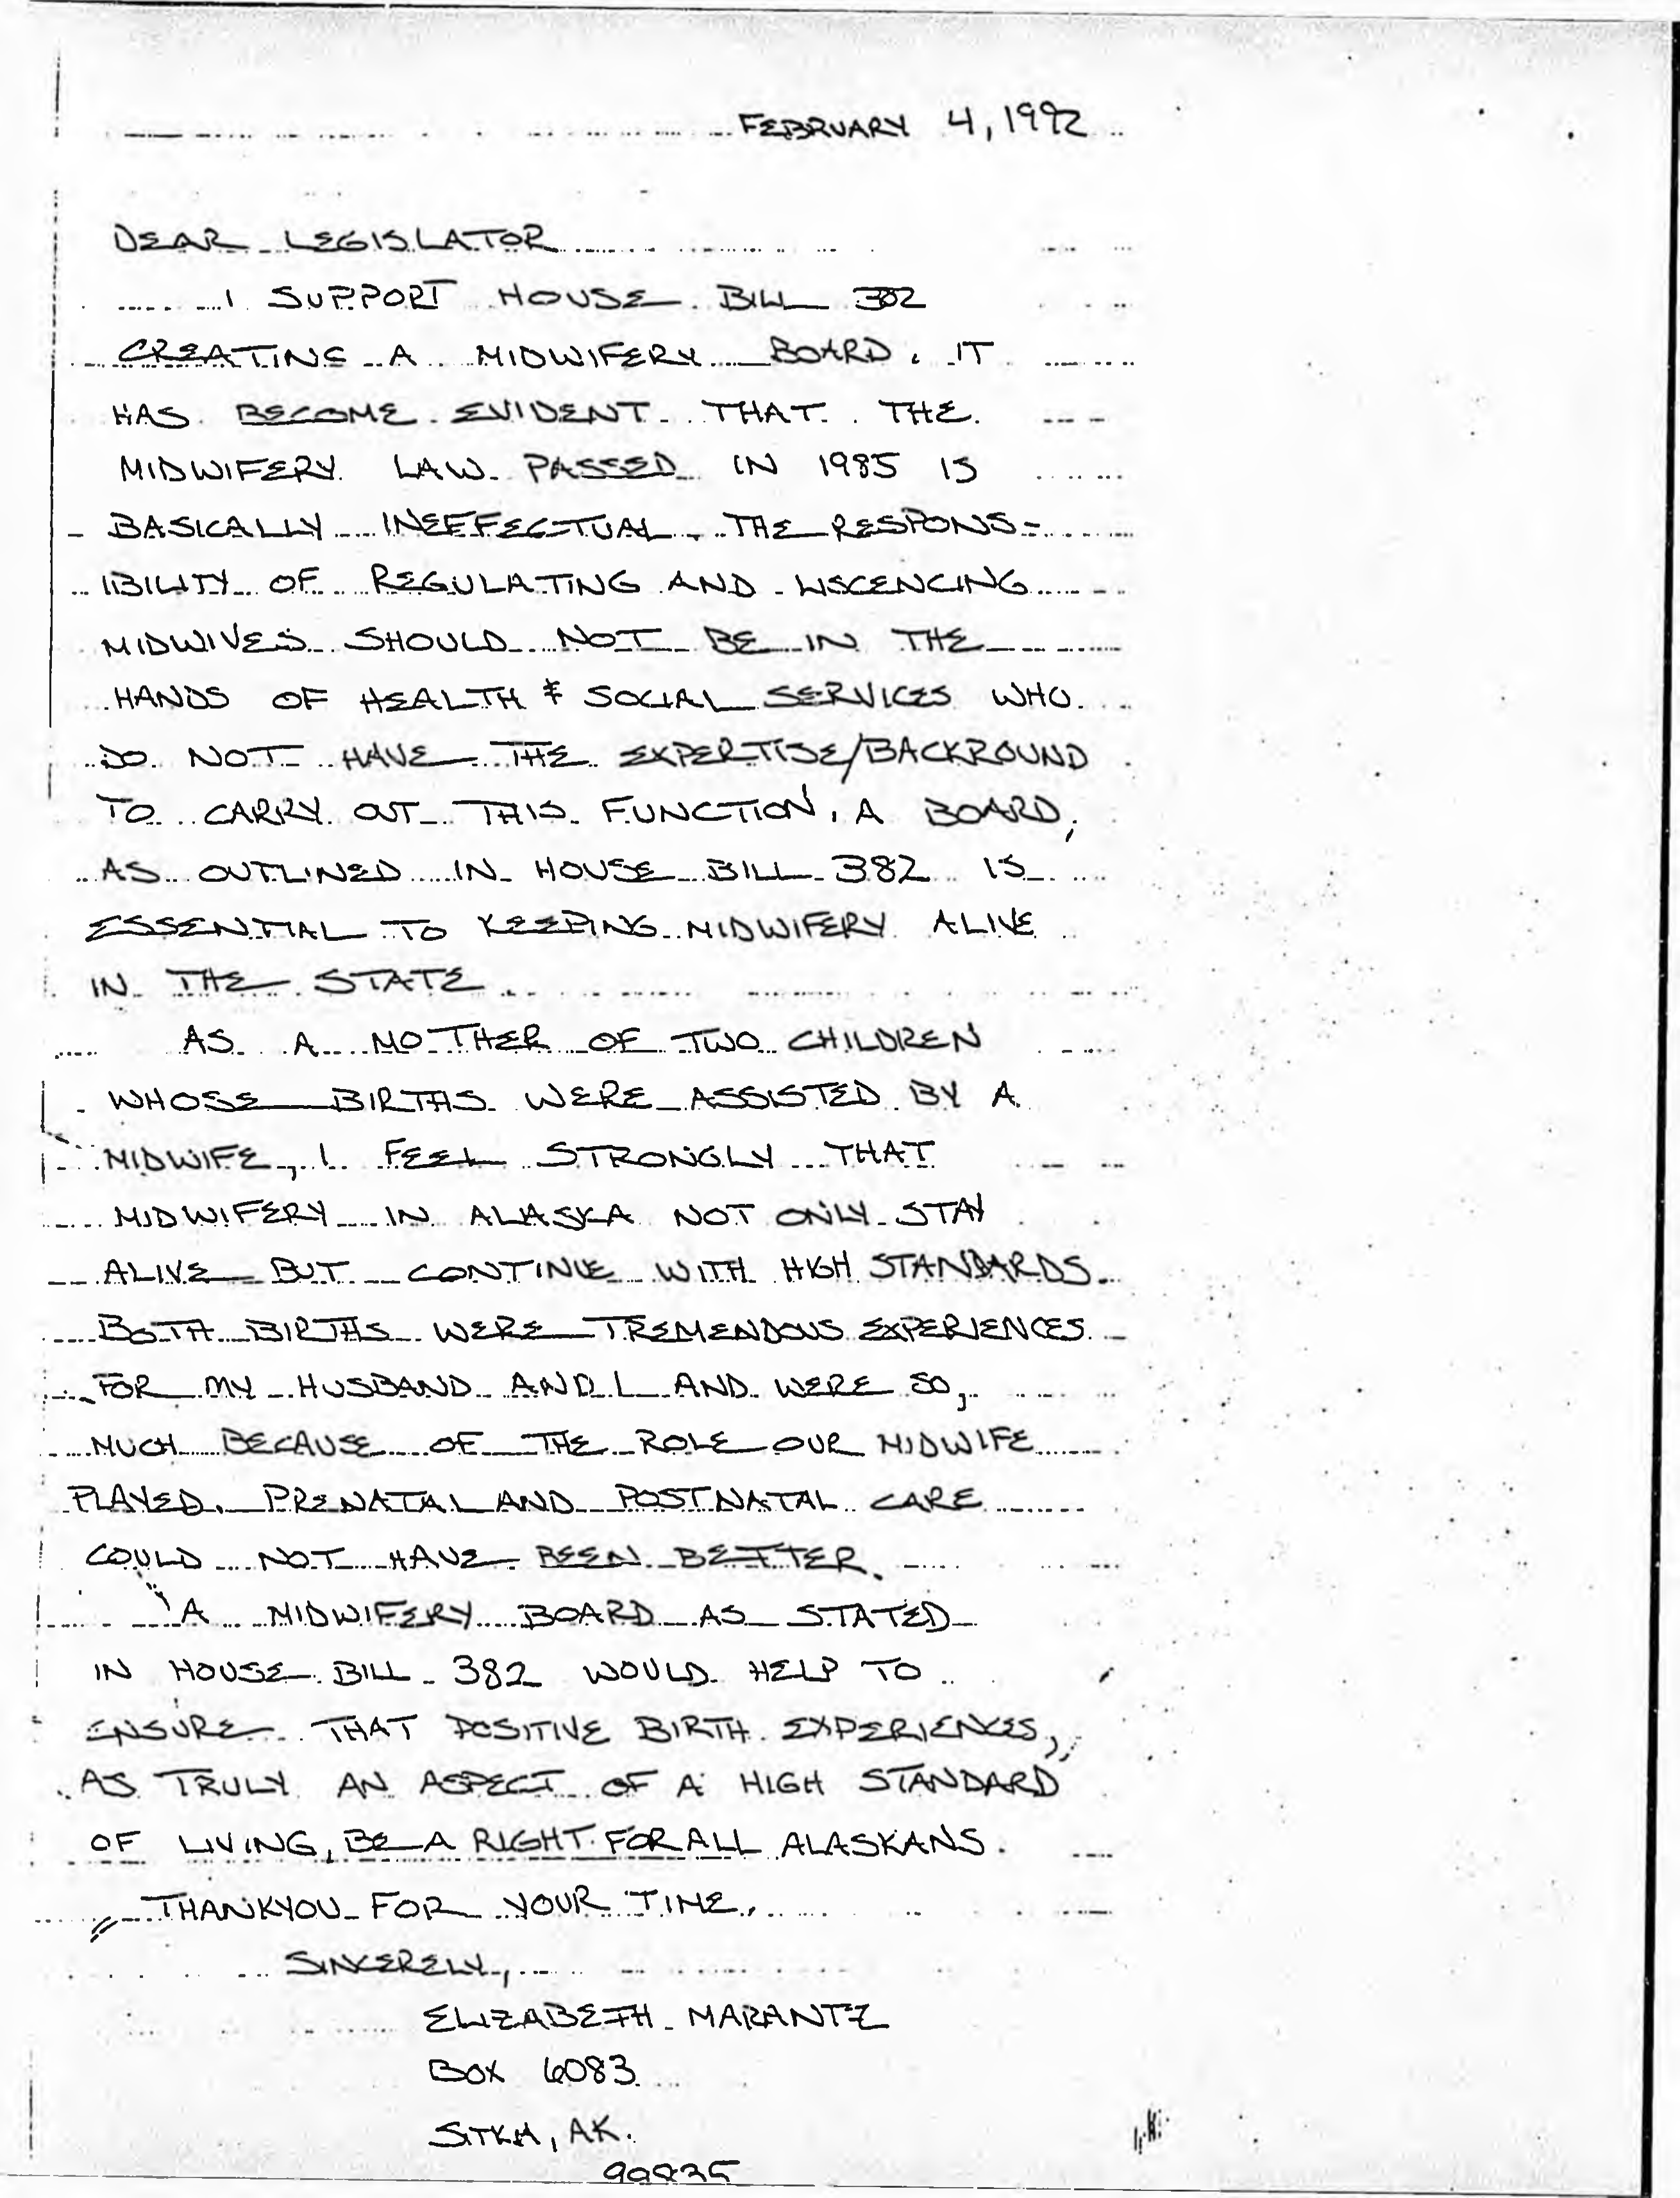 FEBRUARY 4, 1992
DEAR LEGISLATOR
I SUPPORT HOUSE BILL 382
CREATING A MIDWIFERY BOARD. IT
HAS BECOME EVIDENT THAT THE
MIDWIFERY LAW PASSED IN 1985 IS
BASICALLY INEFFECTUAL. THE RESPONS-
IBILITY OF REGULATING AND LISCENCING
MIDWIVES SHOULD NOT BE IN THE
HANDS OF HEALTH & SOCIAL SERVICES WHO
DO NOT HAVE THE EXPERTISE/BACKROUND
TO CARRY OUT THIS FUNCTION. A BOARD,
AS OUTLINED IN HOUSE BILL 382 IS
ESSENTIAL TO KEEPING MIDWIFERY ALIVE
IN THE STATE.
AS A MOTHER OF TWO CHILDREN
WHOSE BIRTHS WERE ASSISTED BY A
MIDWIFE, I FEEL STRONGLY THAT
MIDWIFERY IN ALASKA NOT ONLY STAY
ALIVE BUT CONTINUE WITH HIGH STANDARDS.
BOTH BIRTHS WERE TREMENDOUS EXPERIENCES
FOR MY HUSBAND AND I AND WERE SO,
MUCH BECAUSE OF THE ROLE OUR MIDWIFE
PLAYED. PRENATAL AND POSTNATAL CARE
COULD NOT HAVE BEEN BETTER.
A MIDWIFERY BOARD AS STATED
IN HOUSE BILL 382 WOULD HELP TO
ENSURE THAT POSITIVE BIRTH EXPERIENCES,
AS TRULY AN ASPECT OF A HIGH STANDARD
OF LIVING, BE A RIGHT FOR ALL ALASKANS.
THANKYOU FOR YOUR TIME.
SINCERELY,
ELIZABETH MARANTZ
BOX 6083
SITKA, AK.
99835